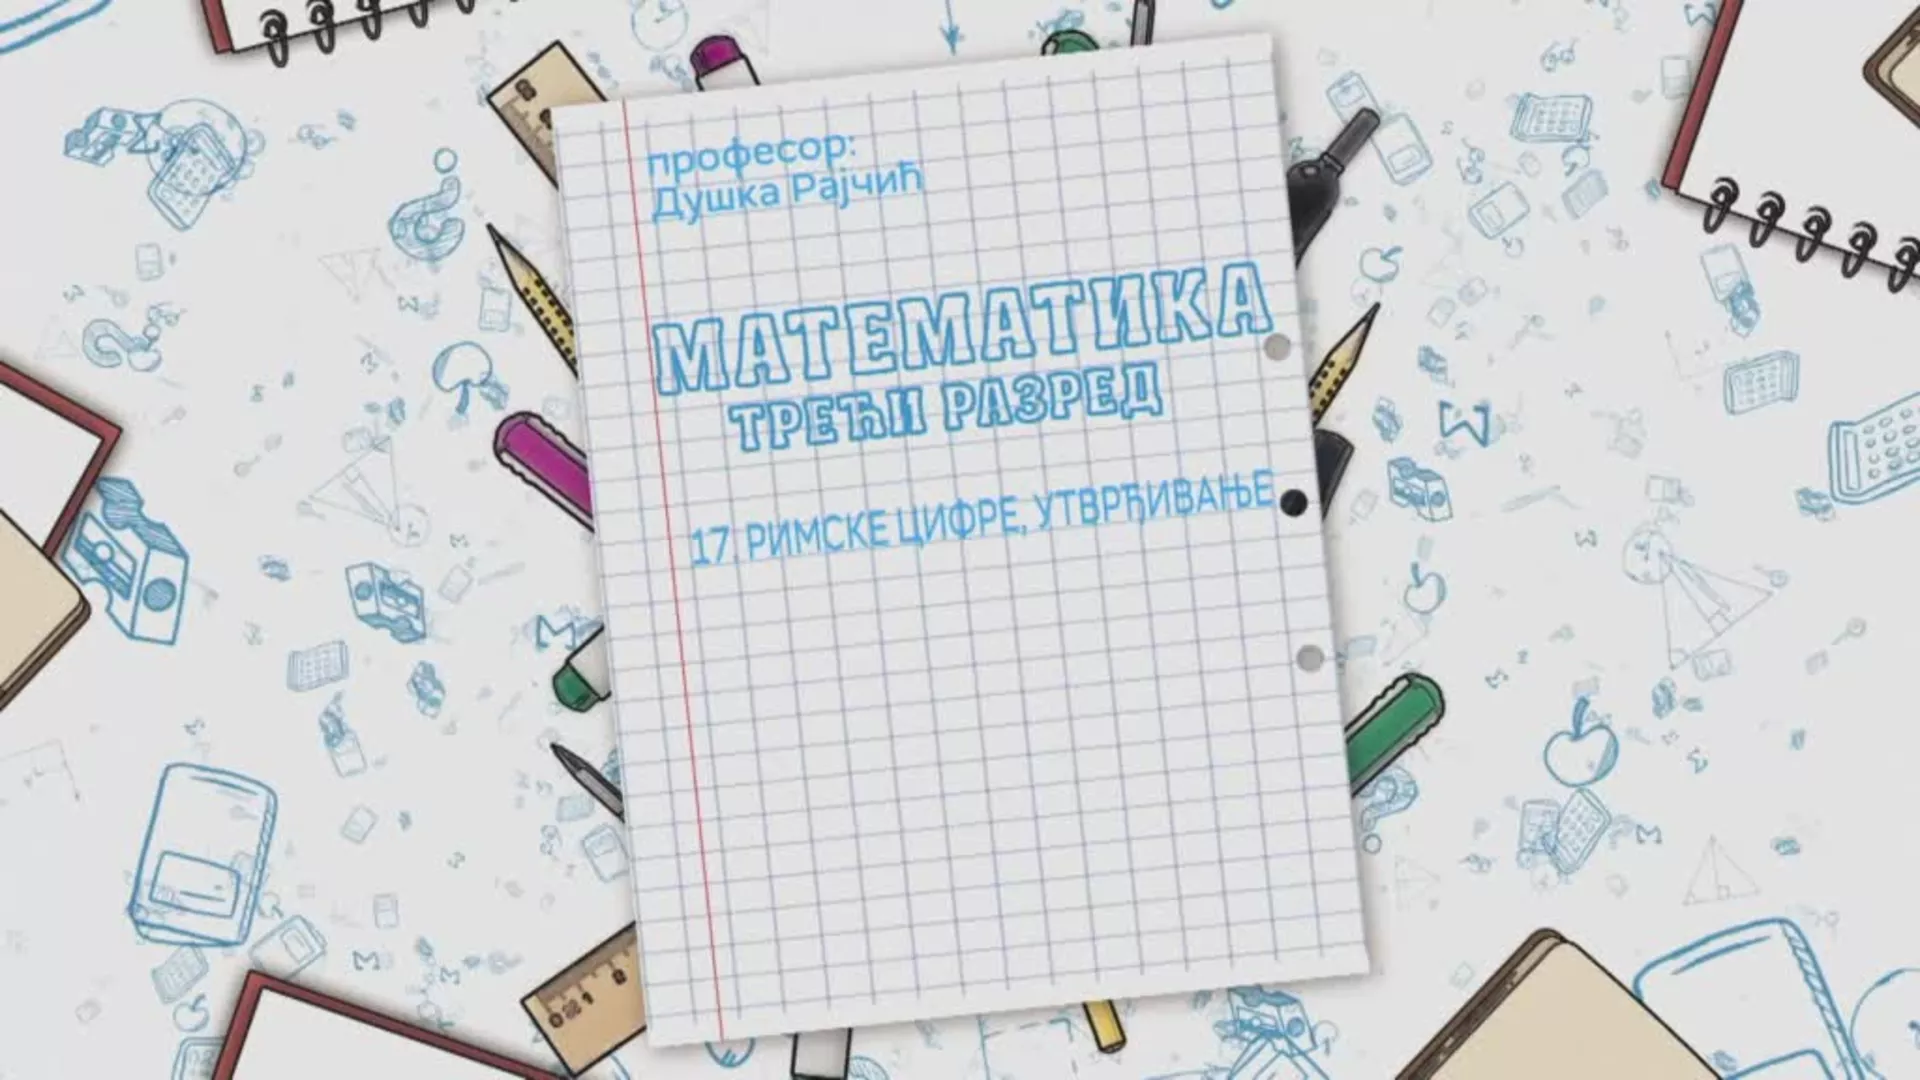 професор:
Душка Рајчић
МАТЕМАТИКА
ТРЕЋИ РАЗРЕД
17. РИМСКЕ ЦИФРЕ, УТВРЂИВАЊЕ